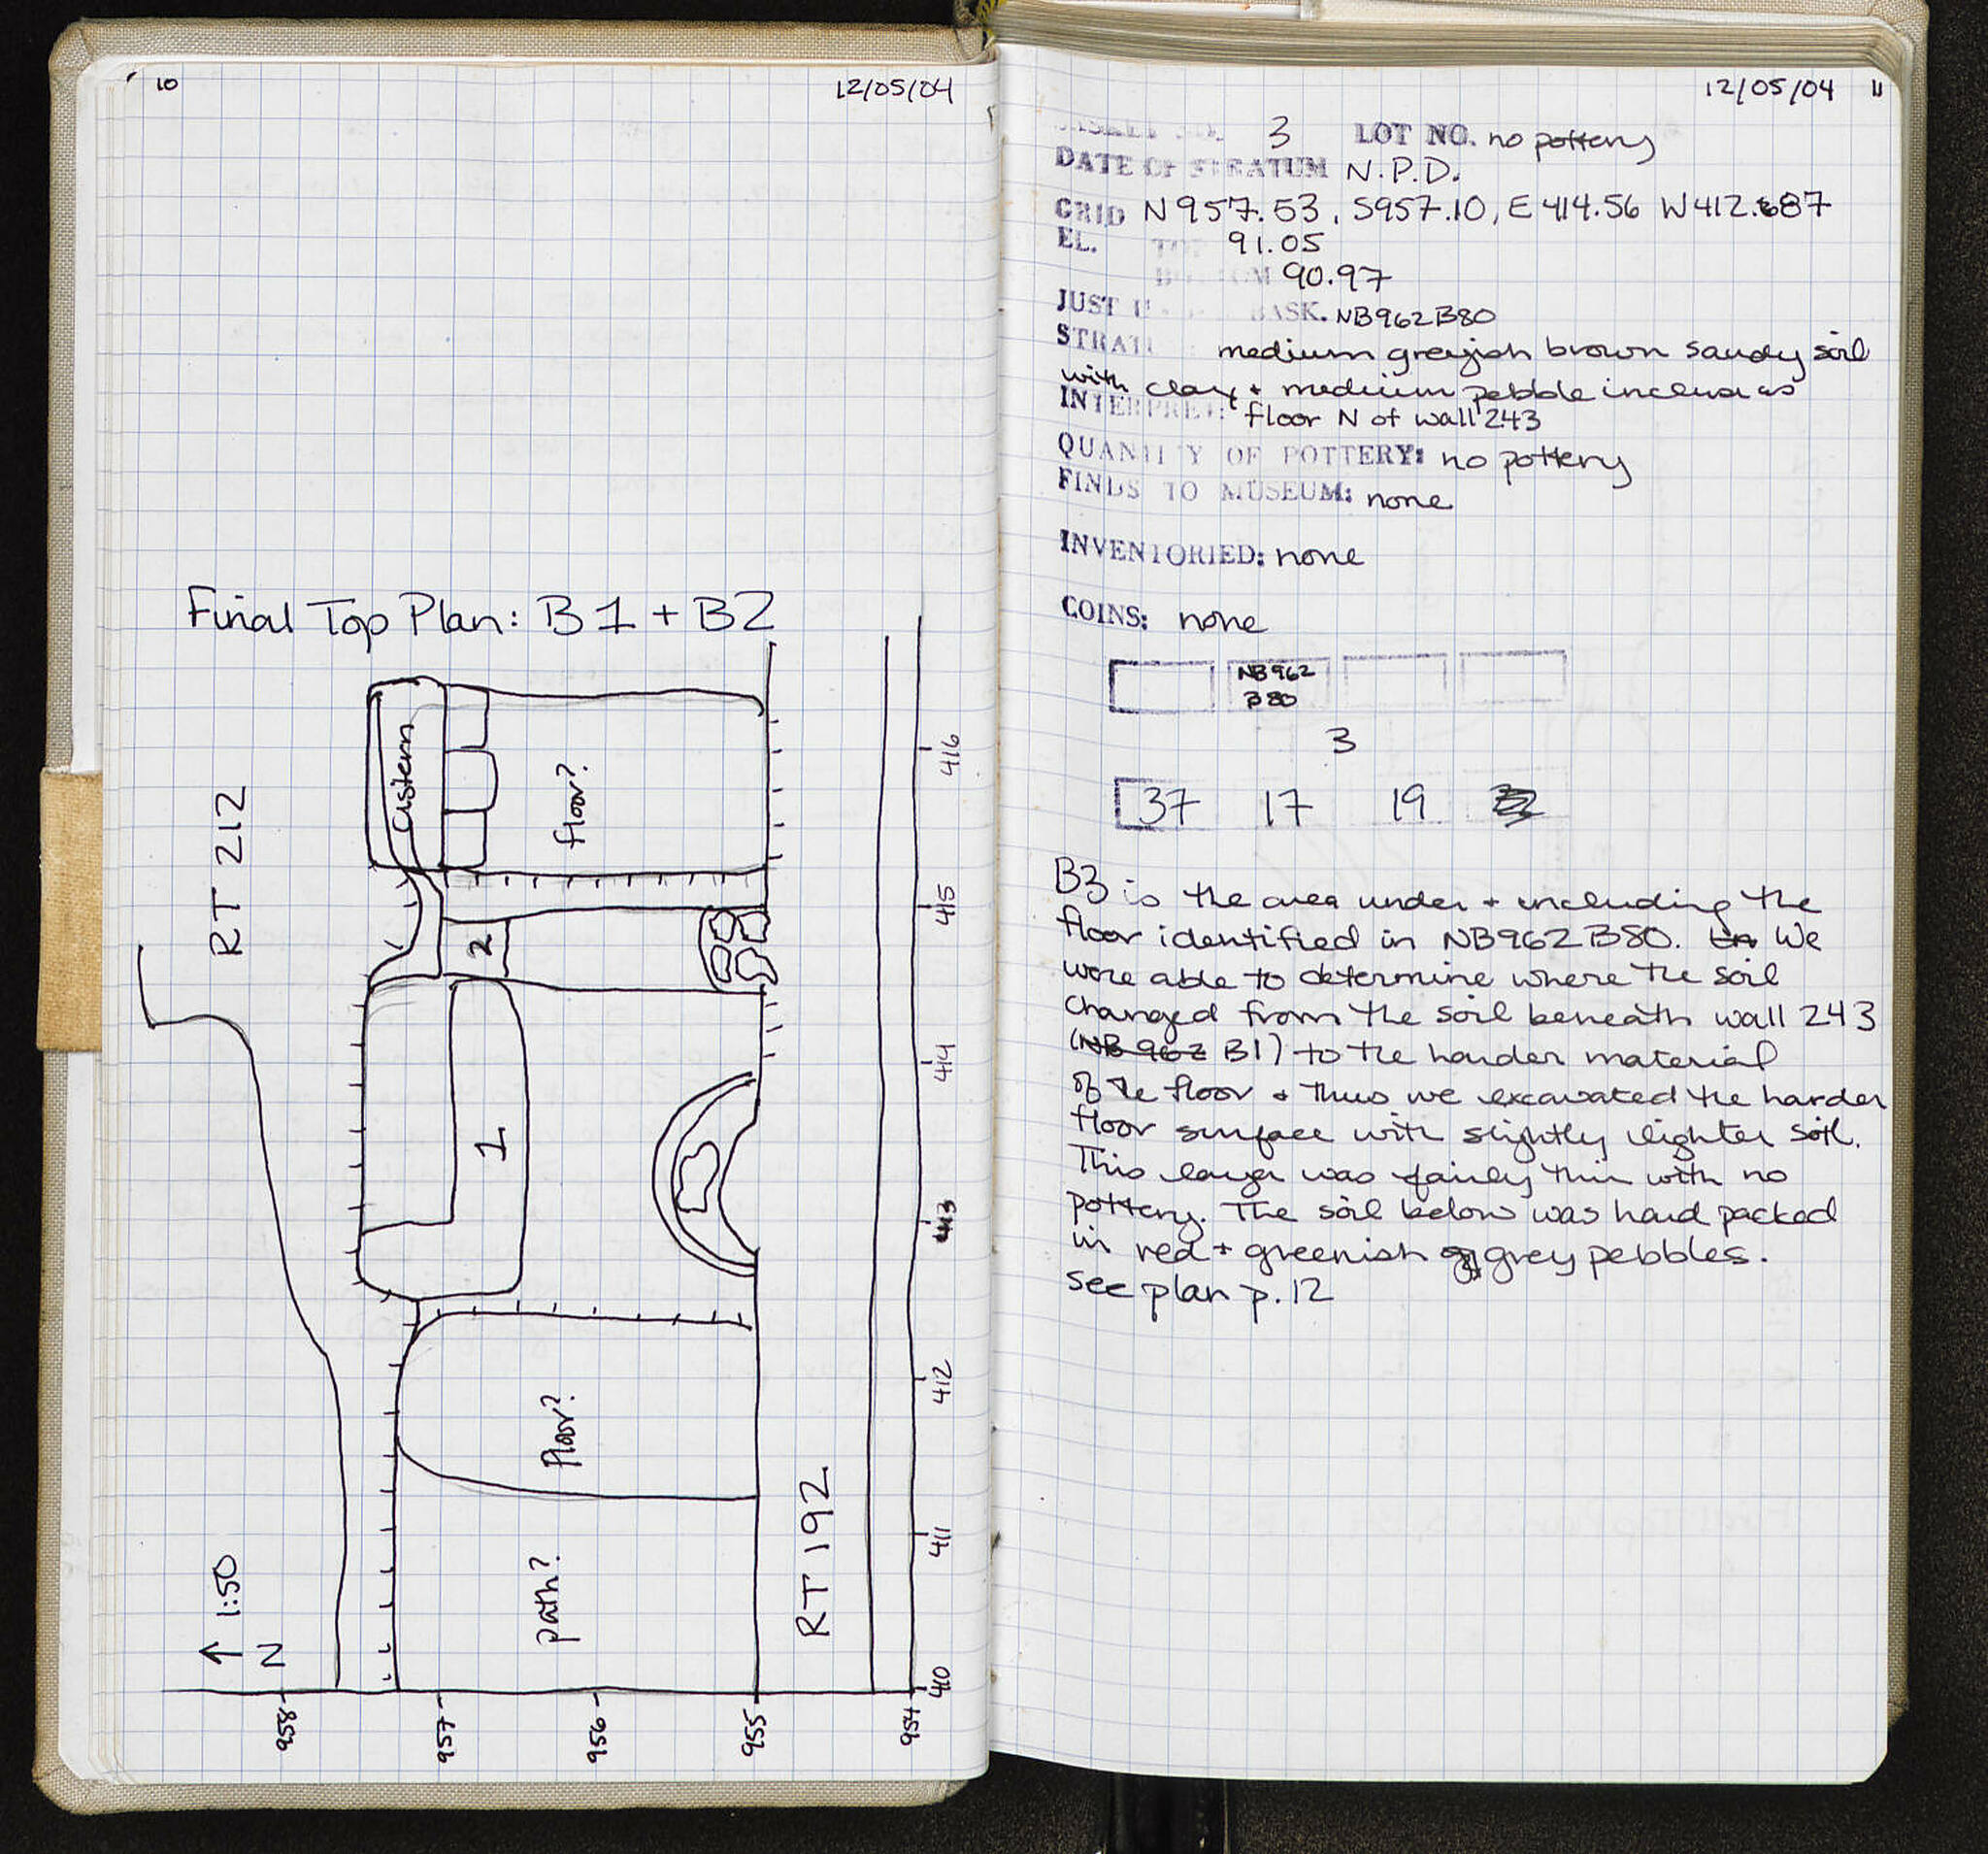 10
12/05/04
Final Top Plan: B1 + B2
RT 212
Cistern
floor?
2
1
floor?
path?
RT 192
1:50
N
958
957
956
955
954
410
411
412
413
414
415
416
12/05/04 11
3 LOT NO. no pottery
DATE OF STRATUM N.P.D.
GRID N957.53, S957.10, E414.56 W412.87
EL. TOP 91.05
BOTTOM 90.97
JUST BASK. NB962B80
STRAT medium greyish brown sandy soil
with clay + medium pebble inclusions
INTERPRET: floor N of wall 243
QUANTITY OF POTTERY: no pottery
FINDS TO MUSEUM: none
INVENTORIED: none
COINS: none
NB962
B80
3
37 17 19
B3 is the area under + including the
floor identified in NB962B80. We
were able to determine where the soil
changed from the soil beneath wall 243
(NB962 B1) to the harder material
of the floor + thus we excavated the harder
floor surface with slightly lighter soil.
This layer was fairly thin with no
pottery. The soil below was hard packed
in red + greenish grey pebbles.
see plan p.12